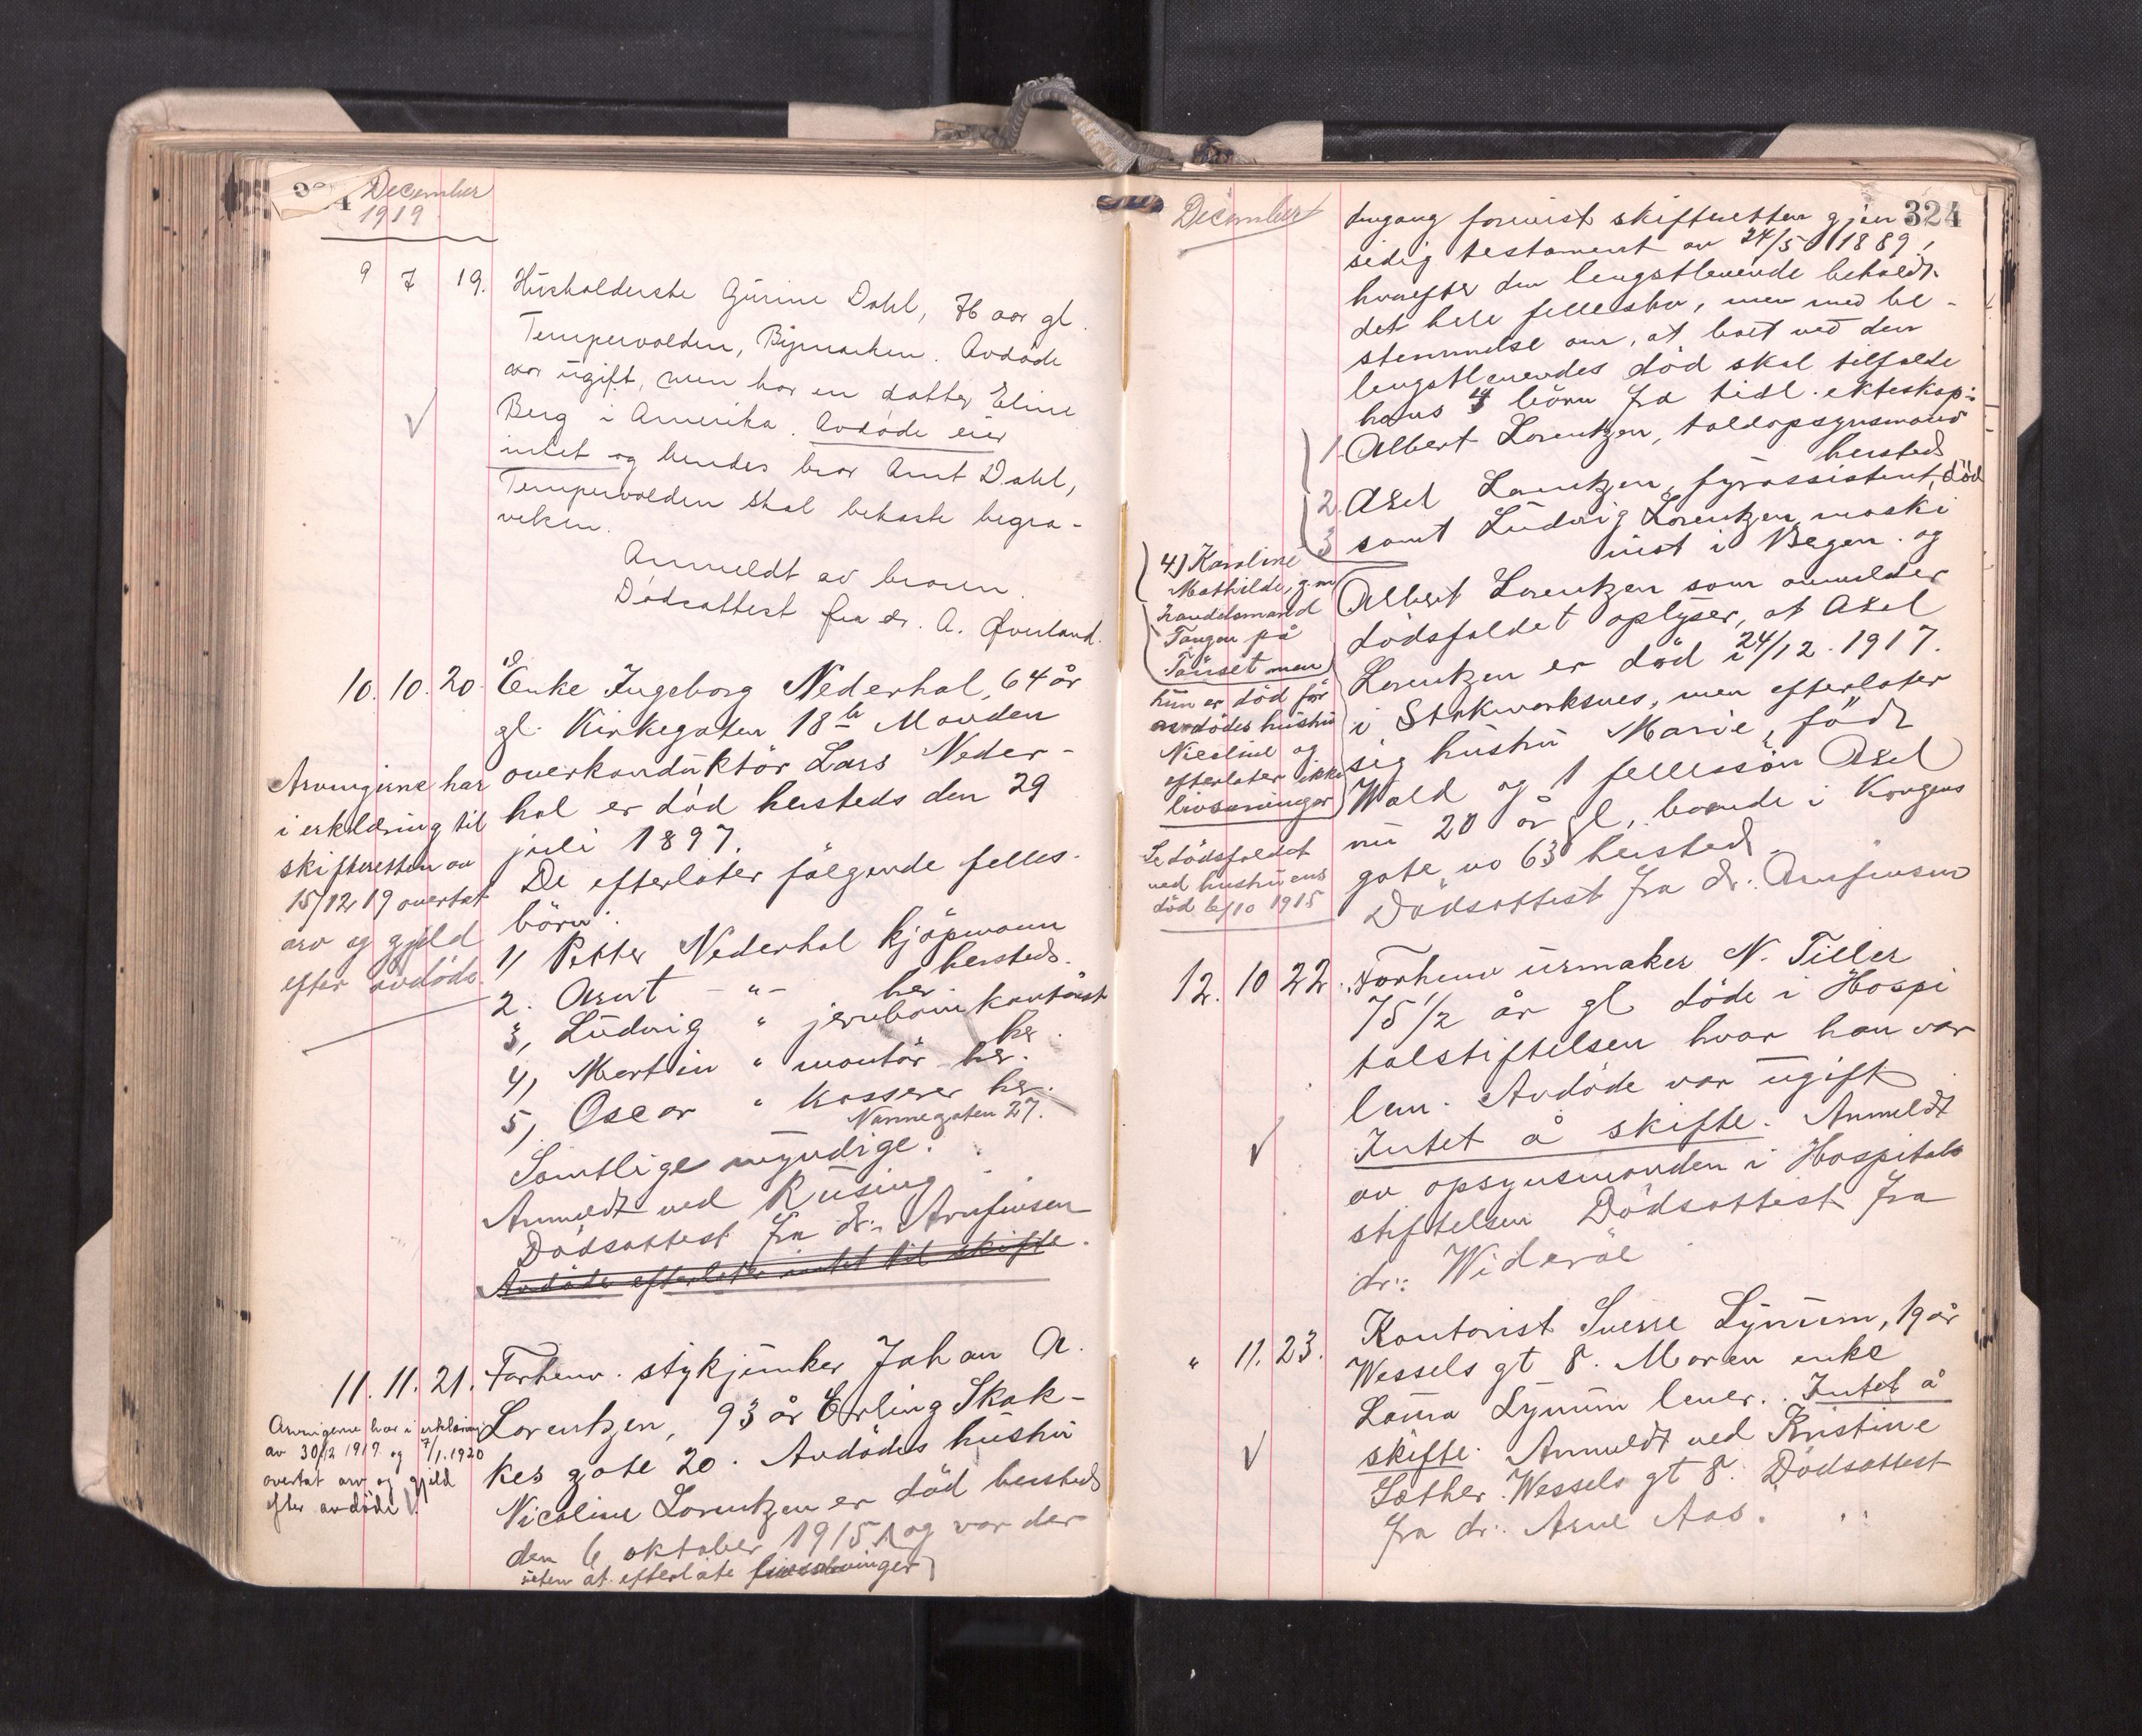 December
1919
9 7 19. Husholderske Gurine Dahl, 76 aar gl.
Tempervolden, Bymarken. Avdøde
var ugift, men har en datter Eline
Berg i Amerika. Avdøde eier
intet og hendes bror Arnt Dahl,
Tempervolden skal bekoste begra-
velsen.
Anmeldt av broren.
Dødsattest fra dr. A. Øverland.
10. 10. 20. Enke Ingeborg Nederhol, 64 år
gl. Kirkegaten 18 b Manden
overkonduktör Lars Neder-
hol er død hersteds den 29
juli 1897.
De efterlater følgende felles-
børn:
1, Petter Nederhol kjöpmann
hersteds.
2. Arnt -"- her
3, Ludvig " jernbanekontorist
her
4, Martin " montör her.
5, Oscar " kasserer her.
Nannegaten 27.
Samtlige myndige.
Anmeldt ved Rusing
Dødsattest fra dr: Arnfinsen
Avdøde efterlater intet til skifte.
Arvingerne har
i erklæring til
skifteretten av
15/12 19 overtat
arv og gjeld
efter avdøde.
11. 11. 21. Forhenv. stykjunker Johan A.
Lorentzen, 93 år Erling Skak-
kes gate 20. Avdødes hustru
Nicoline Lorentzen er död hersteds
den 6 oktober 1915 og var der
uten at efterlate livsarvinger
Arvingerne har i erklæring
av 30/12 1919 og 7/1.1920
overtat arv og gjeld
efter avdöde
324
December
dengang forevist skifteretten gjen
sidig testament av 24/5 1889,
hvorefter den lengstlevende beholdt
det hele fellesbo, men med be-
stemmelse om, at boet ved den
lengstlevendes död skal tilfalde
hans 4 börn fra tidl. ekteskap:
1. Albert Lorentzen, toldopsynsmand
hersteds
2. Axel Lorentzen, fyrassistent, död
3 samt Ludvig Lorentzen maski
nist i Bergen. og
4) Karoline
Mathilde, g.m.
handelsmand
Tangen på
Tönset men
hun er död för
avdödes hustru
Nicoline og
efterlater ikke
livsarvinger
Se dödsfaldet
ved hustruens
död 6/10 1915
Albert Lorentzen som anmelder
dödsfaldet oplyser, at Axel
Lorentzen er död 24/12. 1917.
i Stokmarksnes, men efterlater
sig hustru Marie, födt
Wold og 1 fellessön Axel
nu 20 år gl, boende i Kongens
gate no 63 hersteds
Dödsattest fra dr: Arnfinsen
12. 10 22. Forhenv urmaker N. Tiller
75 1/2 år gl döde i Hospi
talstiftelsen hvor han var
lem. Avdöde var ugift
Intet å skifte. Anmeldt
av opsynsmanden i Hospitals
stiftelsen Dödsattest fra
dr: Wideröe
" 11. 23. Kontorist Sverre Lynum, 19 år
Wessels gt 8. Moren enke
Laura Lynum lever. Intet å
skifte. Anmeldt ved Kristine
Sæther. Wessels gt 8. Dödsattest
fra dr: Arne Aas.